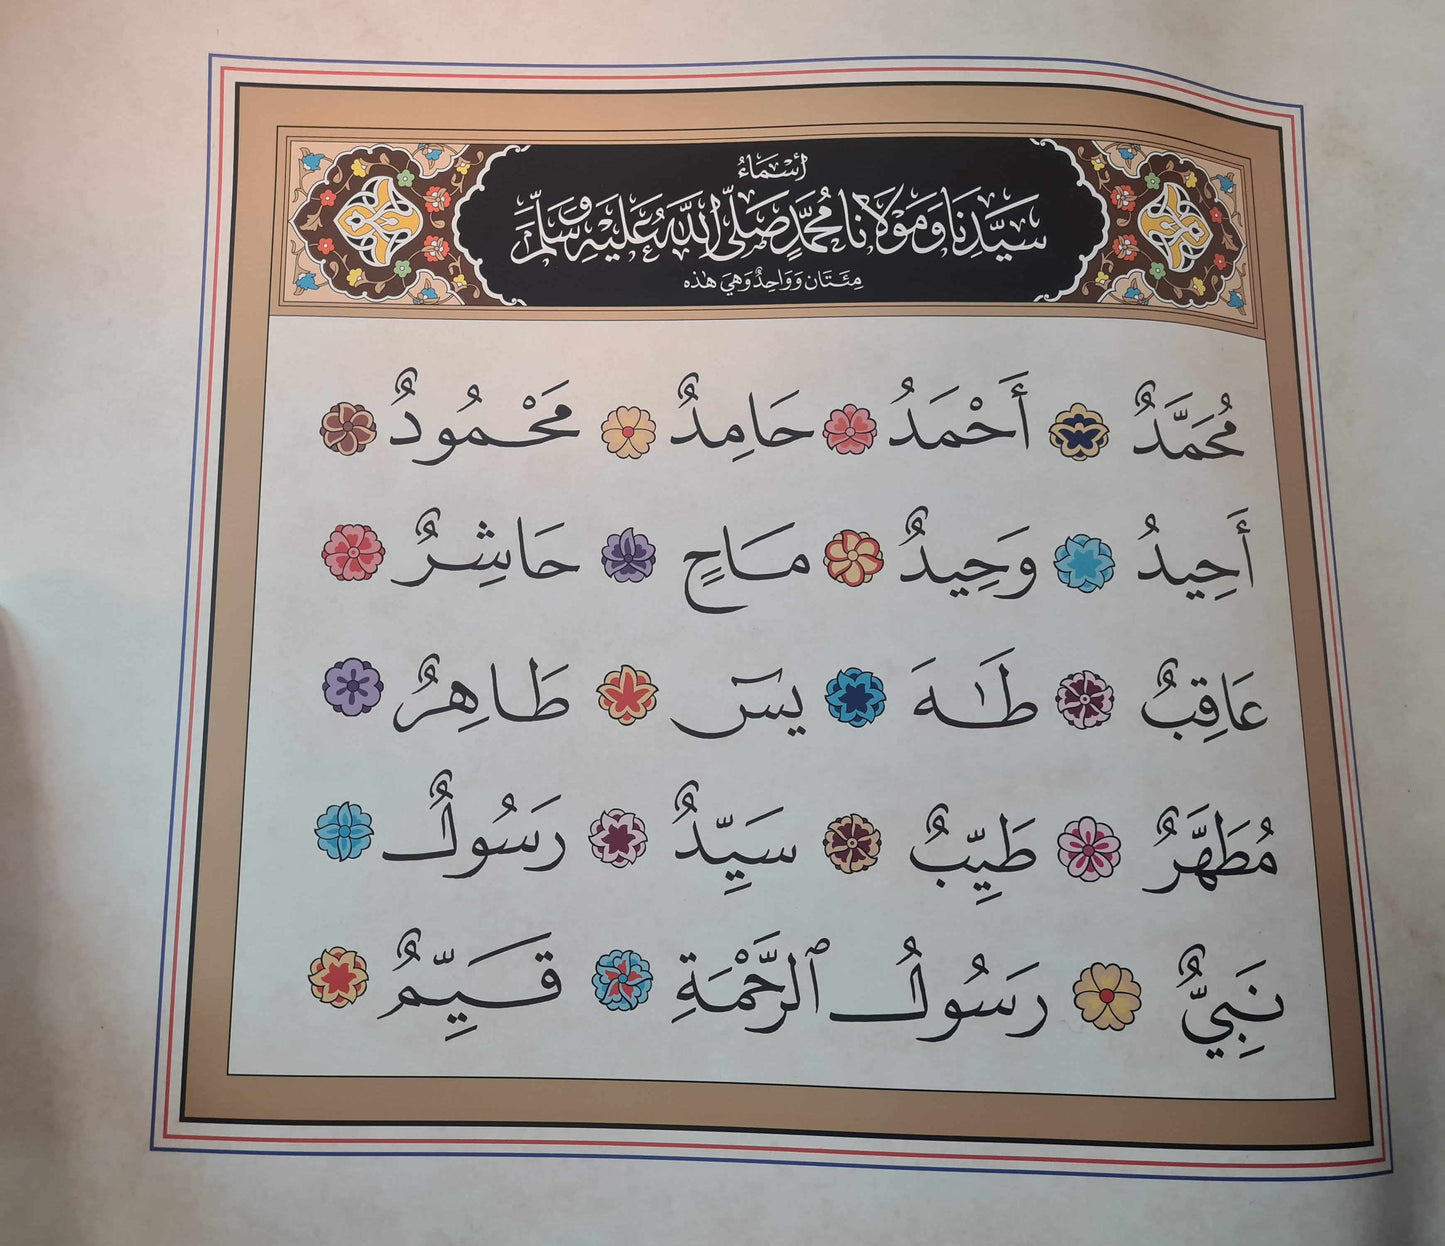 أَسْمَاءُ
سَيِّدِنَا وَمَوْلَانَا مُحَمَّدٍ صَلَّى اللَّهُ عَلَيْهِ وَسَلَّمَ
مِئَتَانِ وَوَاحِدٌ وَهِيَ هٰذِه
مُحَمَّدٌ أَحْمَدُ حَامِدٌ مَحْمُودٌ
أَحِيدُ وَحِيدٌ مَاحٍ حَاشِرٌ
عَاقِبٌ طَٰهَ يسٓ طَاهِرٌ
مُطَهَّرٌ طَيِّبٌ سَيِّدٌ رَسُولٌ
نَبِيٌّ رَسُولُ ٱلرَّحْمَةِ قَيِّمٌ